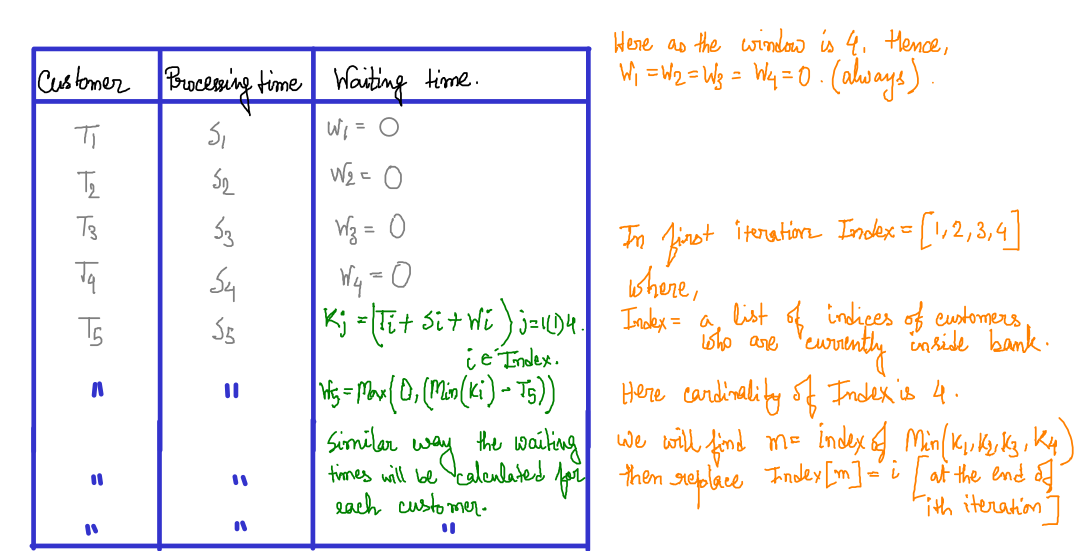 Customer Processing time Waiting time.
T1 S1 W1 = 0
T2 S2 W2 = 0
T3 S3 W3 = 0
T4 S4 W4 = 0
T5 S5 Kj = {Ti + Si + Wi} j=1(1)4.
i ∈ Index.
" " W5 = Max(0, (Min(Ki) - T5))
Similar way the waiting
times will be calculated for
" "
each customer.
" " "
Here as the window is 4. Hence,
W1 = W2 = W3 = W4 = 0. (always).
In first iteration Index = [1, 2, 3, 4]
where,
Index = a list of indices of customers
who are currently inside bank.
Here cardinality of Index is 4.
We will find m = index of Min(K1, K2, K3, K4)
then replace Index[m] = i [at the end of
ith iteration]